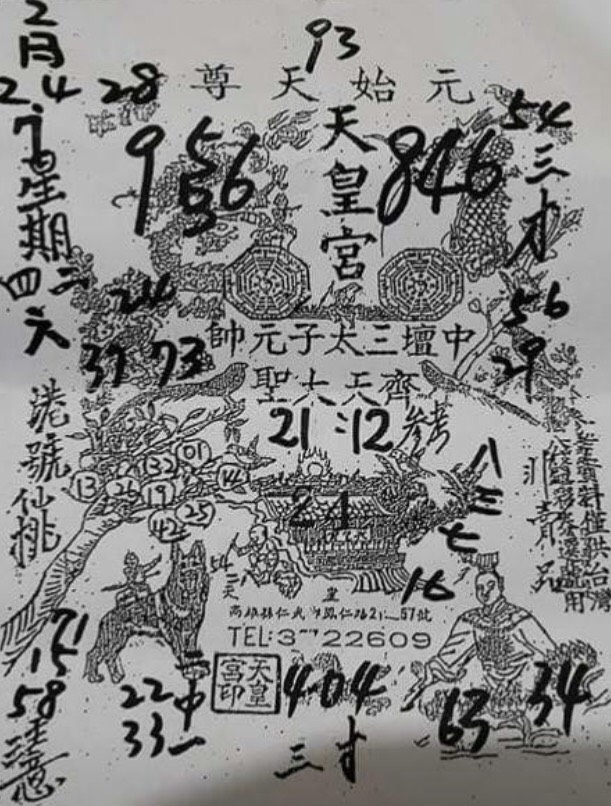 2月
24
28
93
元始天尊
54
三才
7
星期
四二六
956
5
3
天皇宮
846
24
37 73
56
29
中壇三太子元帥
齊天大聖
21:12 參考
港號仙桃
01
32
44
13
26
19
25
42
24
八三七
非賣品
54
16
高雄縣仁武
鳳仁路21
67號
TEL:3
22609
天皇宮印
71
15
58
注意
22
33
二中一
404
三才
63
34